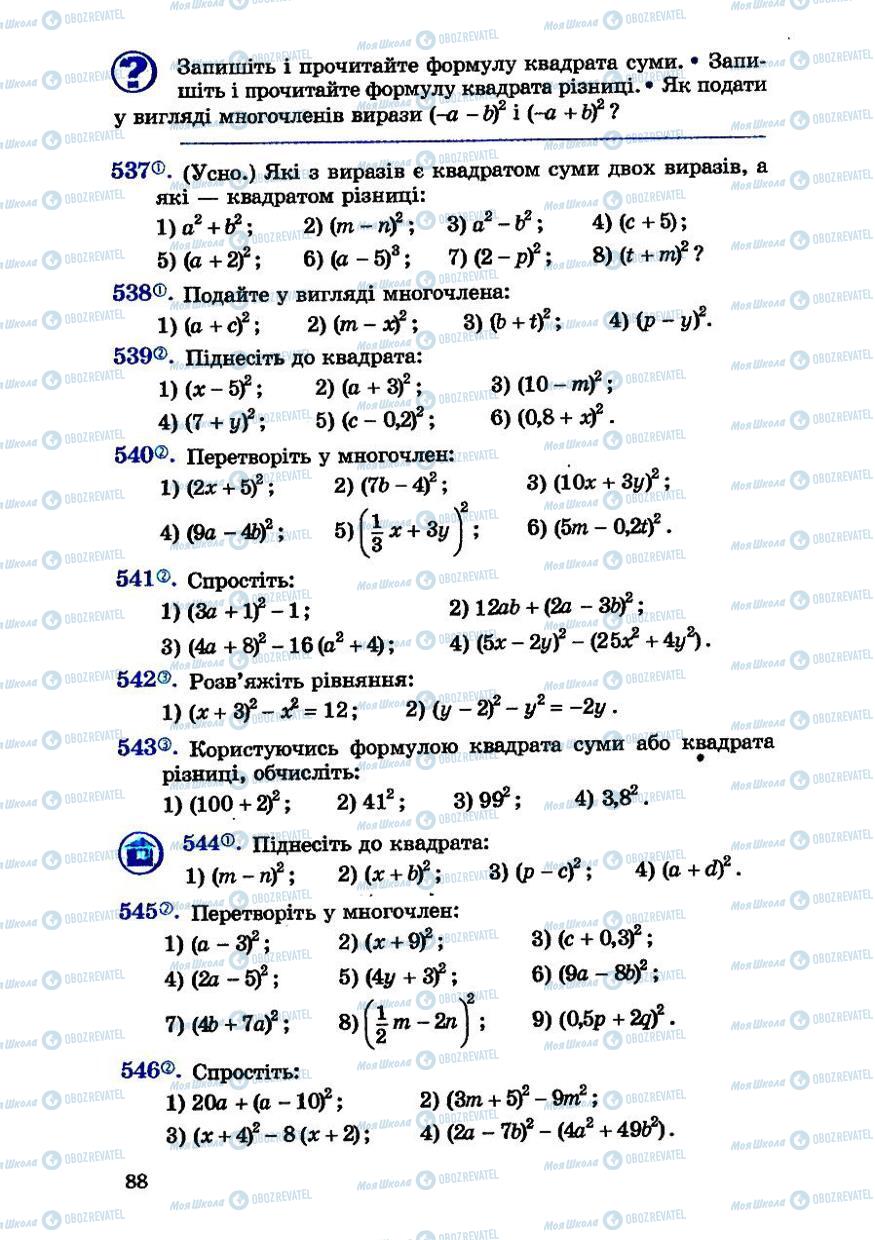 Запишіть і прочитайте формулу квадрата суми. • Запи-
шіть і прочитайте формулу квадрата різниці. • Як подати
у вигляді многочленів вирази (-a - b)² і (-a + b)² ?
537①. (Усно.) Які з виразів є квадратом суми двох виразів, а
які — квадратом різниці:
1) a² + b² ; 2) (m - n)² ; 3) a² - b² ; 4) (c + 5);
5) (a + 2)² ; 6) (a - 5)³ ; 7) (2 - p)² ; 8) (t + m)² ?
538①. Подайте у вигляді многочлена:
1) (a + c)² ; 2) (m - x)² ; 3) (b + t)² ; 4) (p - y)².
539②. Піднесіть до квадрата:
1) (x - 5)² ; 2) (a + 3)² ; 3) (10 - m)² ;
4) (7 + y)² ; 5) (c - 0,2)² ; 6) (0,8 + x)² .
540②. Перетворіть у многочлен:
1) (2x + 5)² ; 2) (7b - 4)² ; 3) (10x + 3y)² ;
4) (9a - 4b)² ; 5) (1/3 x + 3y)² ; 6) (5m - 0,2t)² .
541②. Спростіть:
1) (3a + 1)² - 1 ; 2) 12ab + (2a - 3b)² ;
3) (4a + 8)² - 16 (a² + 4) ; 4) (5x - 2y)² - (25x² + 4y²) .
542③. Розв’яжіть рівняння:
1) (x + 3)² - x² = 12 ; 2) (y - 2)² - y² = -2y .
543③. Користуючись формулою квадрата суми або квадрата
різниці, обчисліть:
1) (100 + 2)² ; 2) 41² ; 3) 99² ; 4) 3,8² .
544①. Піднесіть до квадрата:
1) (m - n)² ; 2) (x + b)² ; 3) (p - c)² ; 4) (a + d)² .
545②. Перетворіть у многочлен:
1) (a - 3)² ; 2) (x + 9)² ; 3) (c + 0,3)² ;
4) (2a - 5)² ; 5) (4y + 3)² ; 6) (9a - 8b)² ;
7) (4b + 7a)² ; 8) (1/2 m - 2n)² ; 9) (0,5p + 2q)² .
546②. Спростіть:
1) 20a + (a - 10)² ; 2) (3m + 5)² - 9m² ;
3) (x + 4)² - 8 (x + 2) ; 4) (2a - 7b)² - (4a² + 49b²) .
88